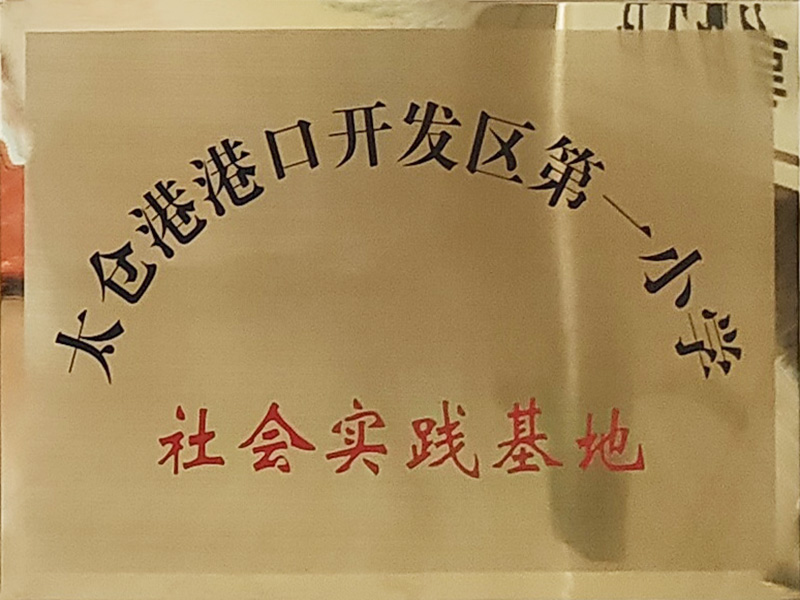 太仓港港口开发区第一小学
社会实践基地